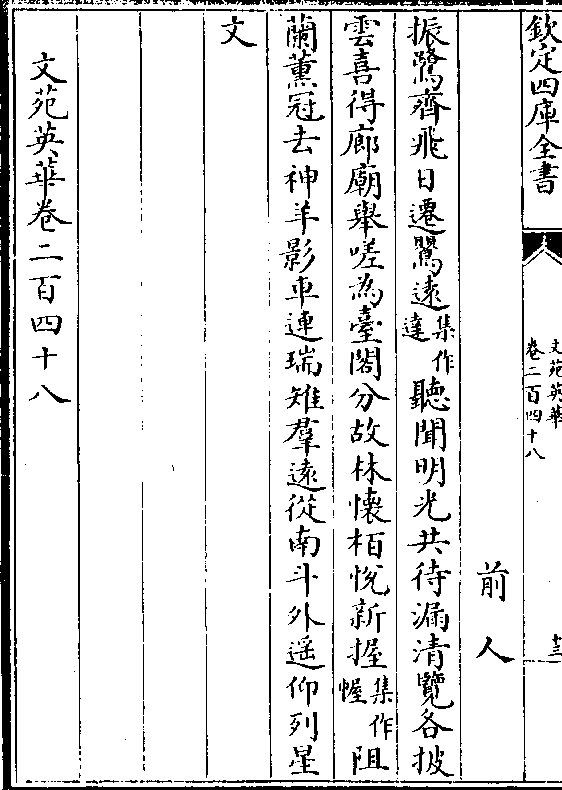 欽定四庫全書
文苑英華
卷二百四十八
十三
前人
振鷺齊飛日遷鶯遠集作達聽聞明光共待漏清覽各披
雲喜得廊廟舉嗟為臺閣分故林懷栢悅新握集作幄阻
蘭薰冠去神羊影車連瑞雉羣遠從南斗外遥仰列星
文
文苑英華卷二百四十八